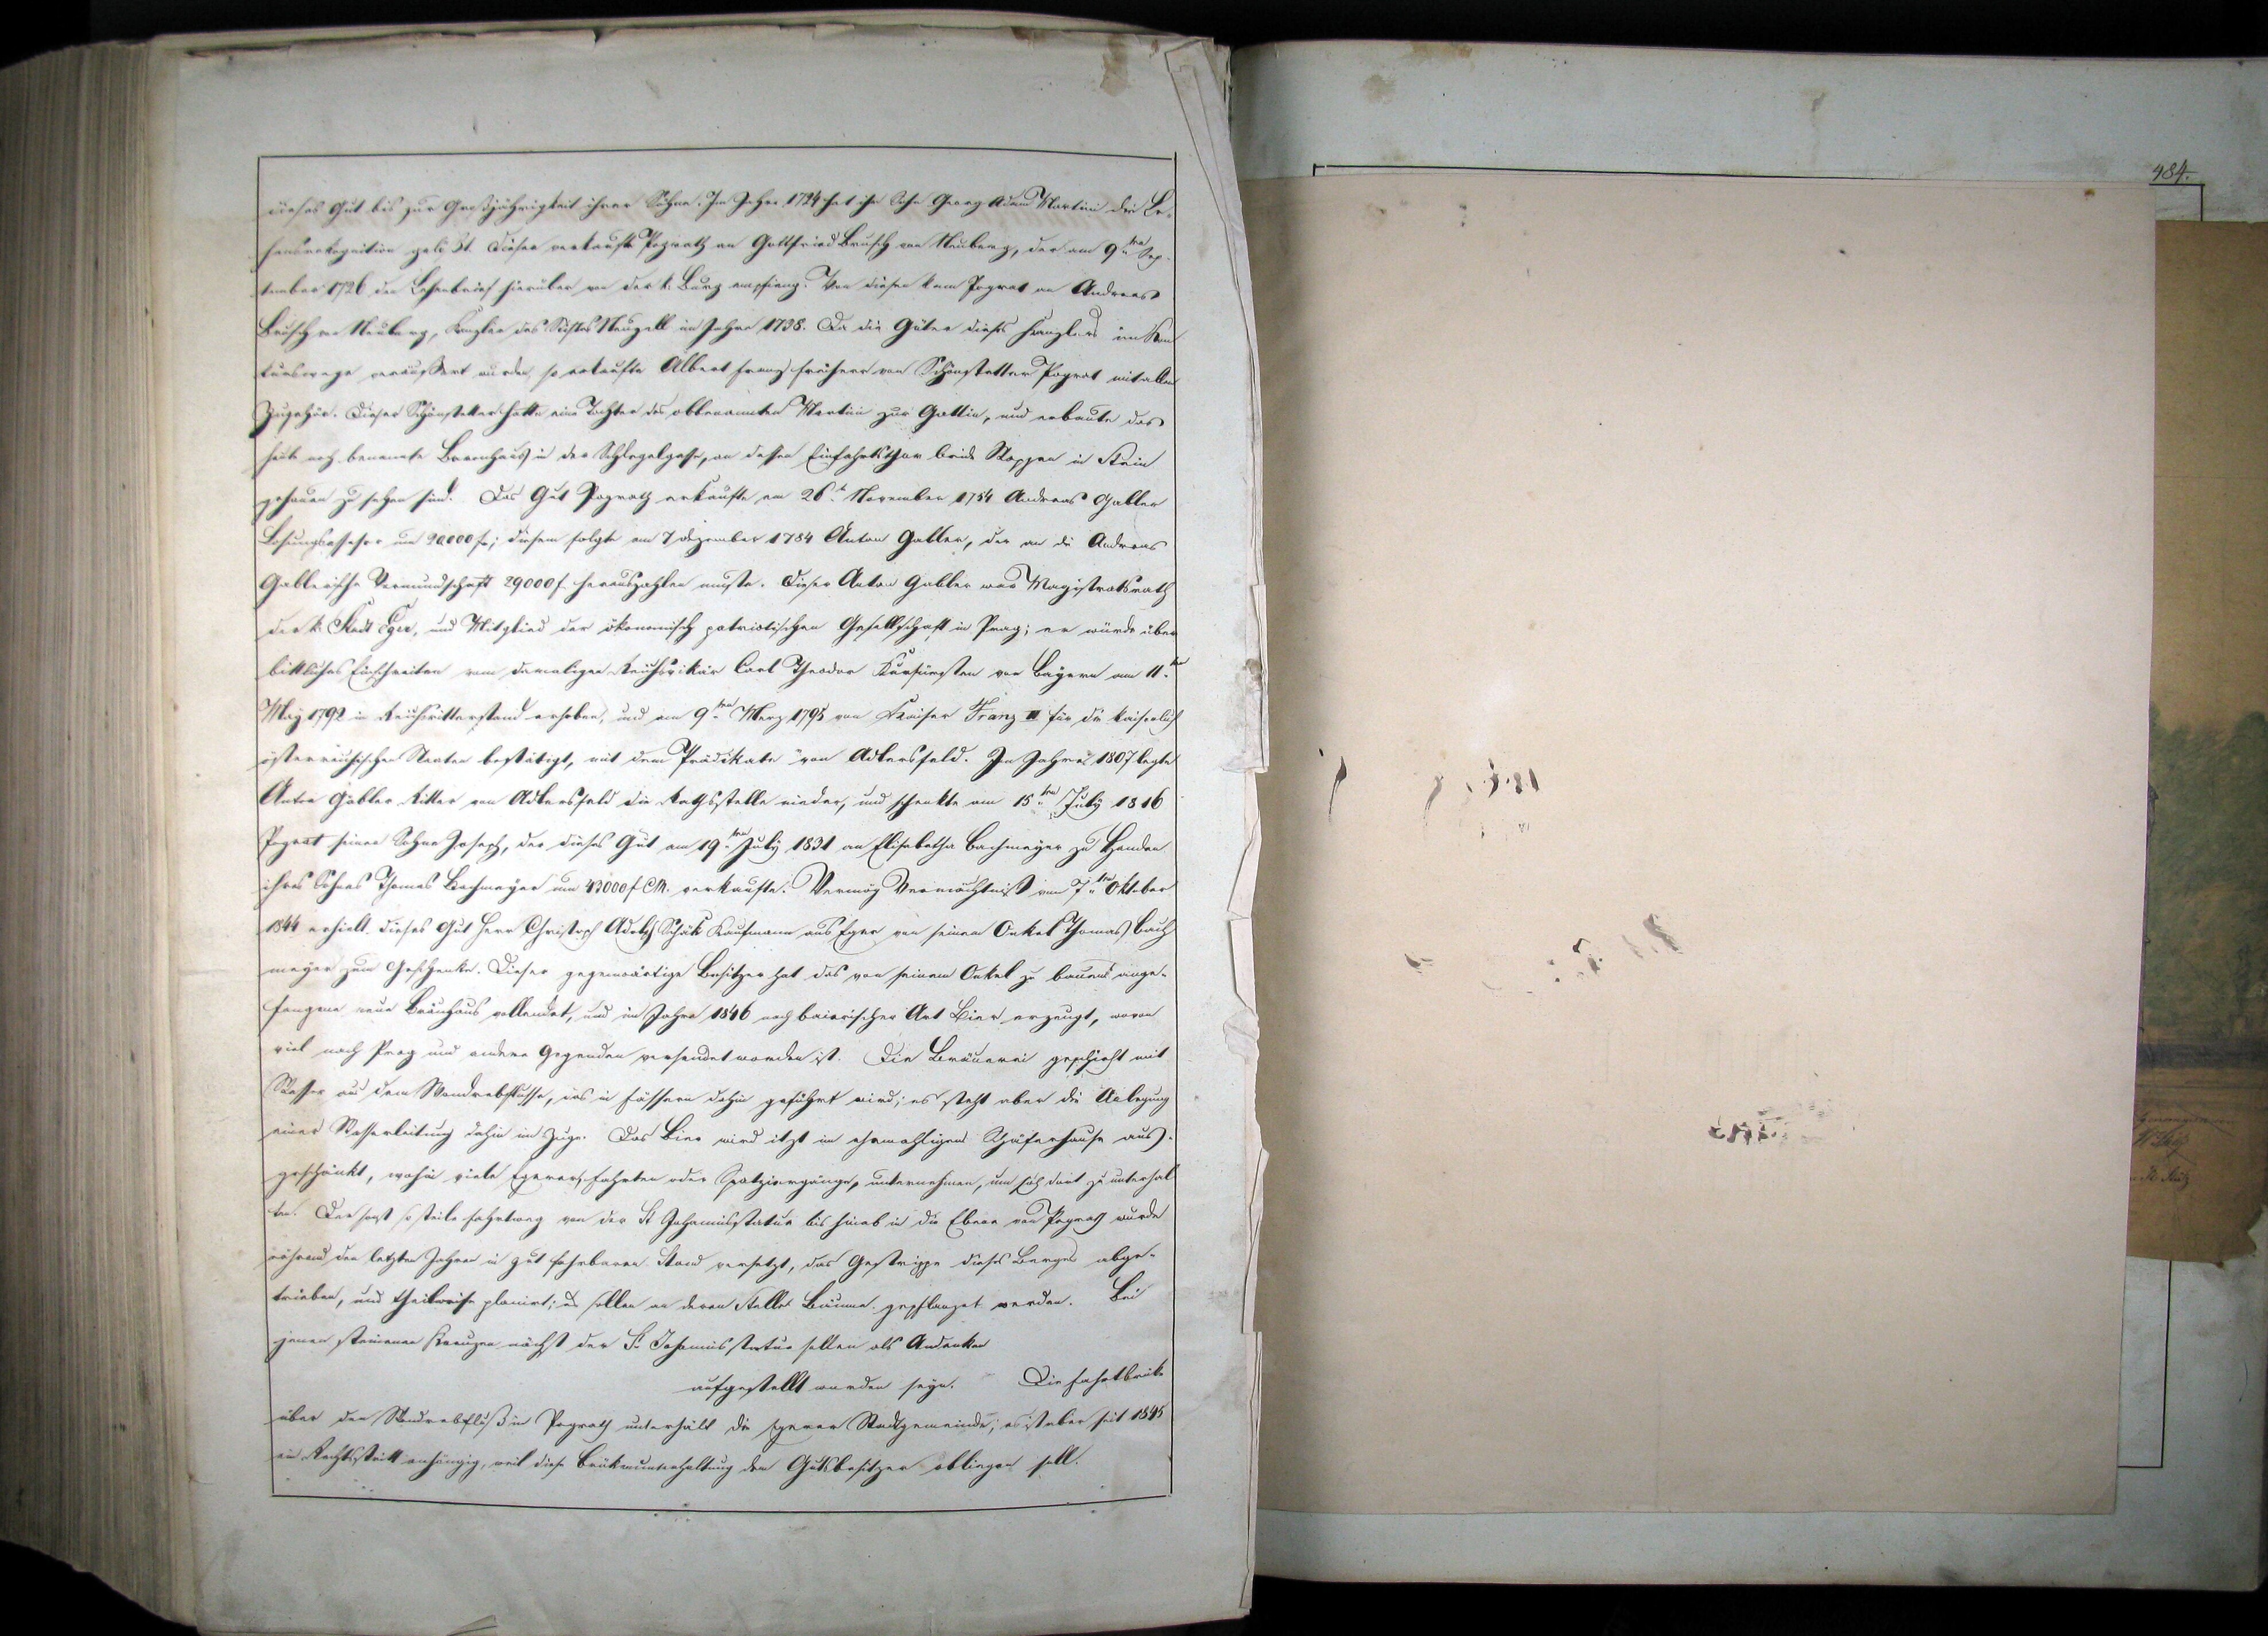 dieses Gut bis zur Großjährigkeit ihrer Söhne. Im Jahre 1724 hat ihr Sohn Georg Adam Martini die Le-
hensrekognition gelößt. Dieser verkaufte Pograth an Gottfried Brusch von Neuberg, der am 9ten Sep-
tember 1726 den Lehenbrief hierüber von der k. Burg empfieng. Von diesen kam Pograt an Andreas
Brusch von Neuberg, Kanzler des Stiftes Neuzell im Jahre 1738. Da die Güter dieses Kanzlers im Kon
kurswege veräußert wurden, so erkaufte Albert Franz Freiherr von Schönstetter Pograt mit allen
Zugehör. Dieser Schönstetter hatte eine Tochter des obbenannten Martini zur Gattin, und erbaute das
heute noch benannte Baronhaus in der Schlegelgasse, an dessen Einfahrtsthor beide Wappen in Stein
gehauen zu sehen sind. Das Gut Pograth erkaufte am 26t November 1754 Andreas Gabler
Losungsassessor um 20000 f; diesem folgte am 7 Dezember 1784 Anton Gabler, der an die Andreas
Gablerische Vormundschaft 29000 f herauszahlen mußte. Dieser Anton Gabler war Magistratsrath
der k. Stadt Eger, und Mitglied der ökonomisch patriotischen Gesellschaft in Prag; er wurde über
bittliches Einschreiten vom damaligen Reichsvikär Carl Theodor Kurfürsten von Bayern am 11ten
May 1792 in Reichsritterstand erhoben, und am 9ten Merz 1795 von Kaiser Franz II für die kaiserlich
österreichischen Staaten bestätigt, mit dem Prädikate von Adlersfeld. Im Jahre 1807 legte
Anton Gabler Ritter von Adlersfeld die Rathsstelle nieder, und schenkte am 15ten July 1816
Pograt seinen Sohne Joseph, der dieses Gut am 19ten July 1831 an Elisabetha Bachmayer zu Handen
ihres Sohnes Thomas Bachmayer um 43000 f CM. verkaufte. Vermög Vermächtniß vom 7ten Oktober
1844 erhielt dieses Gut Herr Christoph Adolph Schük Kaufmann aus Eger von seinem Onkel Thomas Bach
mayer zum Geschenke. Dieser gegenwärtige Besitzer hat das von seinem Onkel zu bauen ange-
fangene neue Bräuhaus vollendet, und im Jahre 1846 nach bairischer Art Bier erzeugt, wovon
viel nach Prag und andern Gegenden versendet worden ist. Die Bräuerei geschieht mit
Wasser aus dem Wondrebflusse, das in Fässern dahin geführt wird; es steht aber die Anlegung
einer Wasserleitung dahin im Zuge. Das Bier wird itzt im ehemahligen Schäferhause aus-
geschänkt, wohin viele Egerer Fahrten oder Spatziergänge unternehmen, um sich dort zu unterhal
ten. Der sonst so steile Fahrtweg von der St Johannisstatue bis hinab in die Ebene von Pograth wurde
während den letzten Jahren in gut fahrbaren Stand versetzt, das Gestrippe dieses Berges abge-
trieben, und theilweise planirt; es sollen an deren Stelle Bäume gepflanzet werden. Bei
jenen steinenen Kreuzen nächst der St Johannisstatue sollen als Andenken
aufgestellt worden seyn. Die Fahrtbrücke
über den Wondrebfluß in Pograth unterhält die Egerer Stadtgemeinde; es ist aber seit 1845
ein Rechtsstritt anhängig, weil diese Brückenunterhaltung dem Gutsbesitzer obliegen soll.
484.